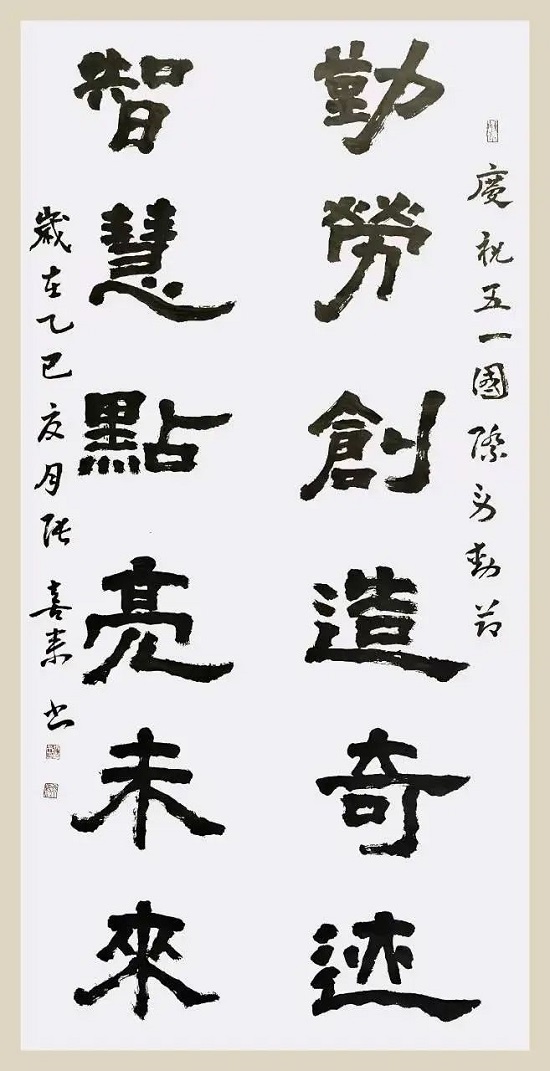 慶祝五一國際勞動節
勤勞創造奇迹
智慧點亮未來
歲在乙巳夏月張喜書